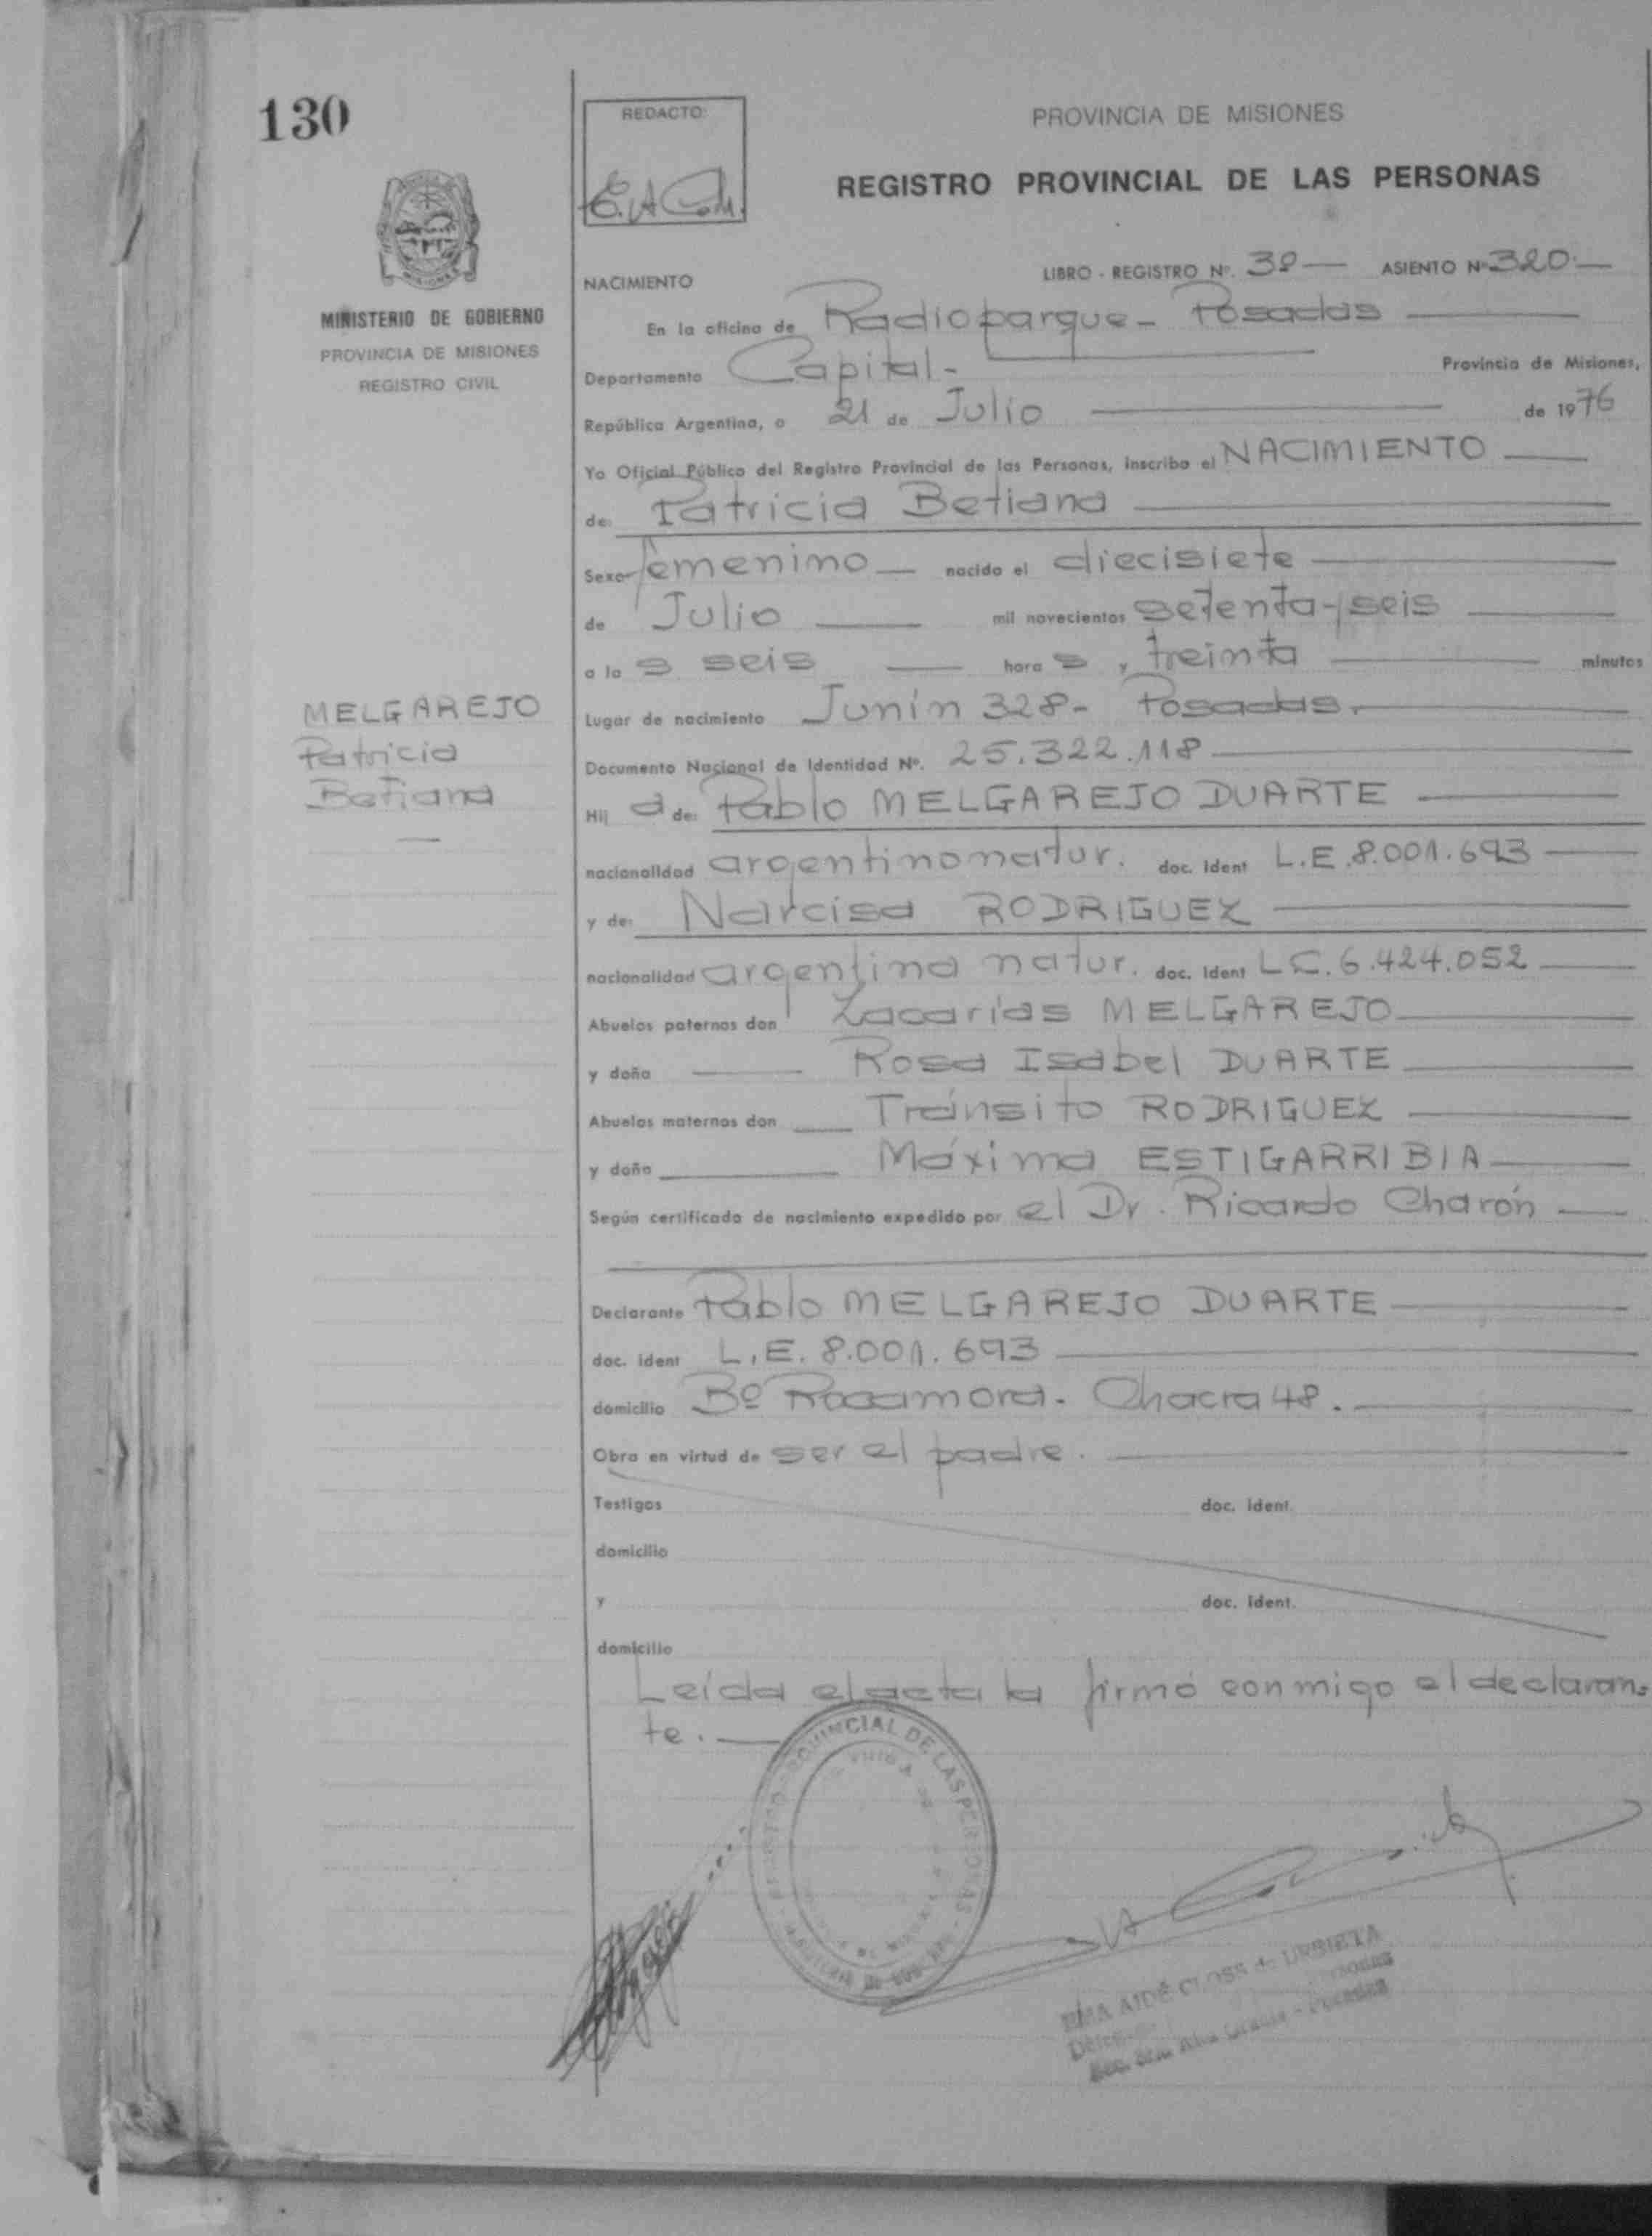 130
REDACTO:
PROVINCIA DE MISIONES
REGISTRO PROVINCIAL DE LAS PERSONAS
MISIONES
MINISTERIO DE GOBIERNO
PROVINCIA DE MISIONES
REGISTRO CIVIL
LIBRO - REGISTRO Nº. ASIENTO Nº 320.
NACIMIENTO
En la oficina de Radioparque - Posadas
Departamento Capital. Provincia de Misiones,
República Argentina, a 21 de Julio de 1976
Yo Oficial Público del Registro Provincial de las Personas, inscribo el NACIMIENTO
de: Patricia Betiana
Sexo femenino nacido el diecisiete
de Julio mil novecientos setenta y seis
a la s seis hora s y treinta minutos
Lugar de nacimiento Junín 328 - Posadas.
MELGAREJO
Patricia
Betiana
Documento Nacional de Identidad Nº. 25.322.118
Hij a de: Pablo MELGAREJO DUARTE
nacionalidad argentino natur. doc. Ident L.E. 8.001.693
y de: Narcisa RODRIGUEZ
nacionalidad argentina natur. doc. Ident L.C. 6.424.052
Abuelos paternos don Zacarías MELGAREJO
y doña Rosa Isabel DUARTE
Abuelos maternos don Tránsito RODRIGUEZ
y doña Máxima ESTIGARRIBIA
Según certificado de nacimiento expedido por el Dr. Ricardo Charón
Declarante Pablo MELGAREJO DUARTE
doc. ident L.E. 8.001.693
domicilio Bº Rocamora. Chacra 48.
Obra en virtud de ser el padre.
Testigos doc. ident.
domicilio
y doc. ident.
domicilio
Leída el acta la firmó conmigo el declaran-
te.
PROVINCIAL DE LAS PERSONAS
AIDÉ CLOSS de URBIETA
Posadas